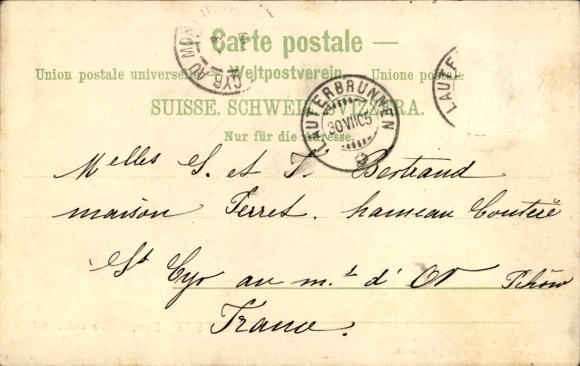 CYR AU MON
Carte postale —
Union postale universelle. — Weltpostverein. — Unione postale
SUISSE. SCHWEIZ. SVIZZERA.
Nur für die Adresse.
LAUTERBRUNNEN
30 VII 05
LAUTE
Melles S. et T. Bertrand
maison Ferret. hameau Couterê
St Cyr au mt d'Or Rhône
France.